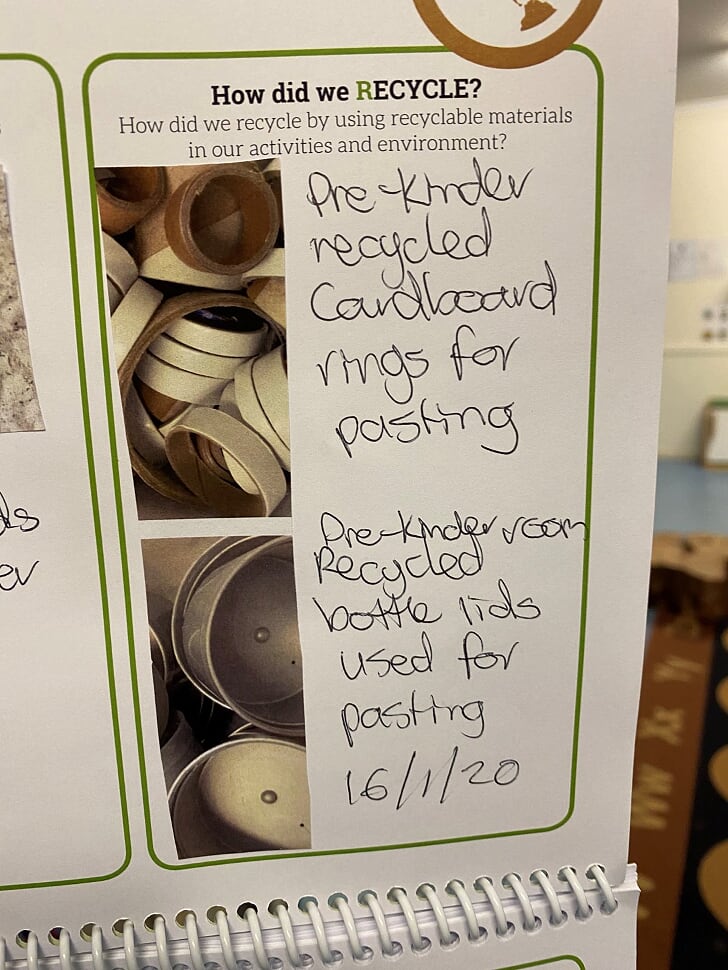 How did we RECYCLE?
How did we recycle by using recyclable materials
in our activities and environment?
Pre-Kinder
recycled
Cardboard
rings for
pasting
Pre-Kinder room
Recycled
bottle lids
used for
pasting
16/1/20
ds
er
Ww Xx Yy